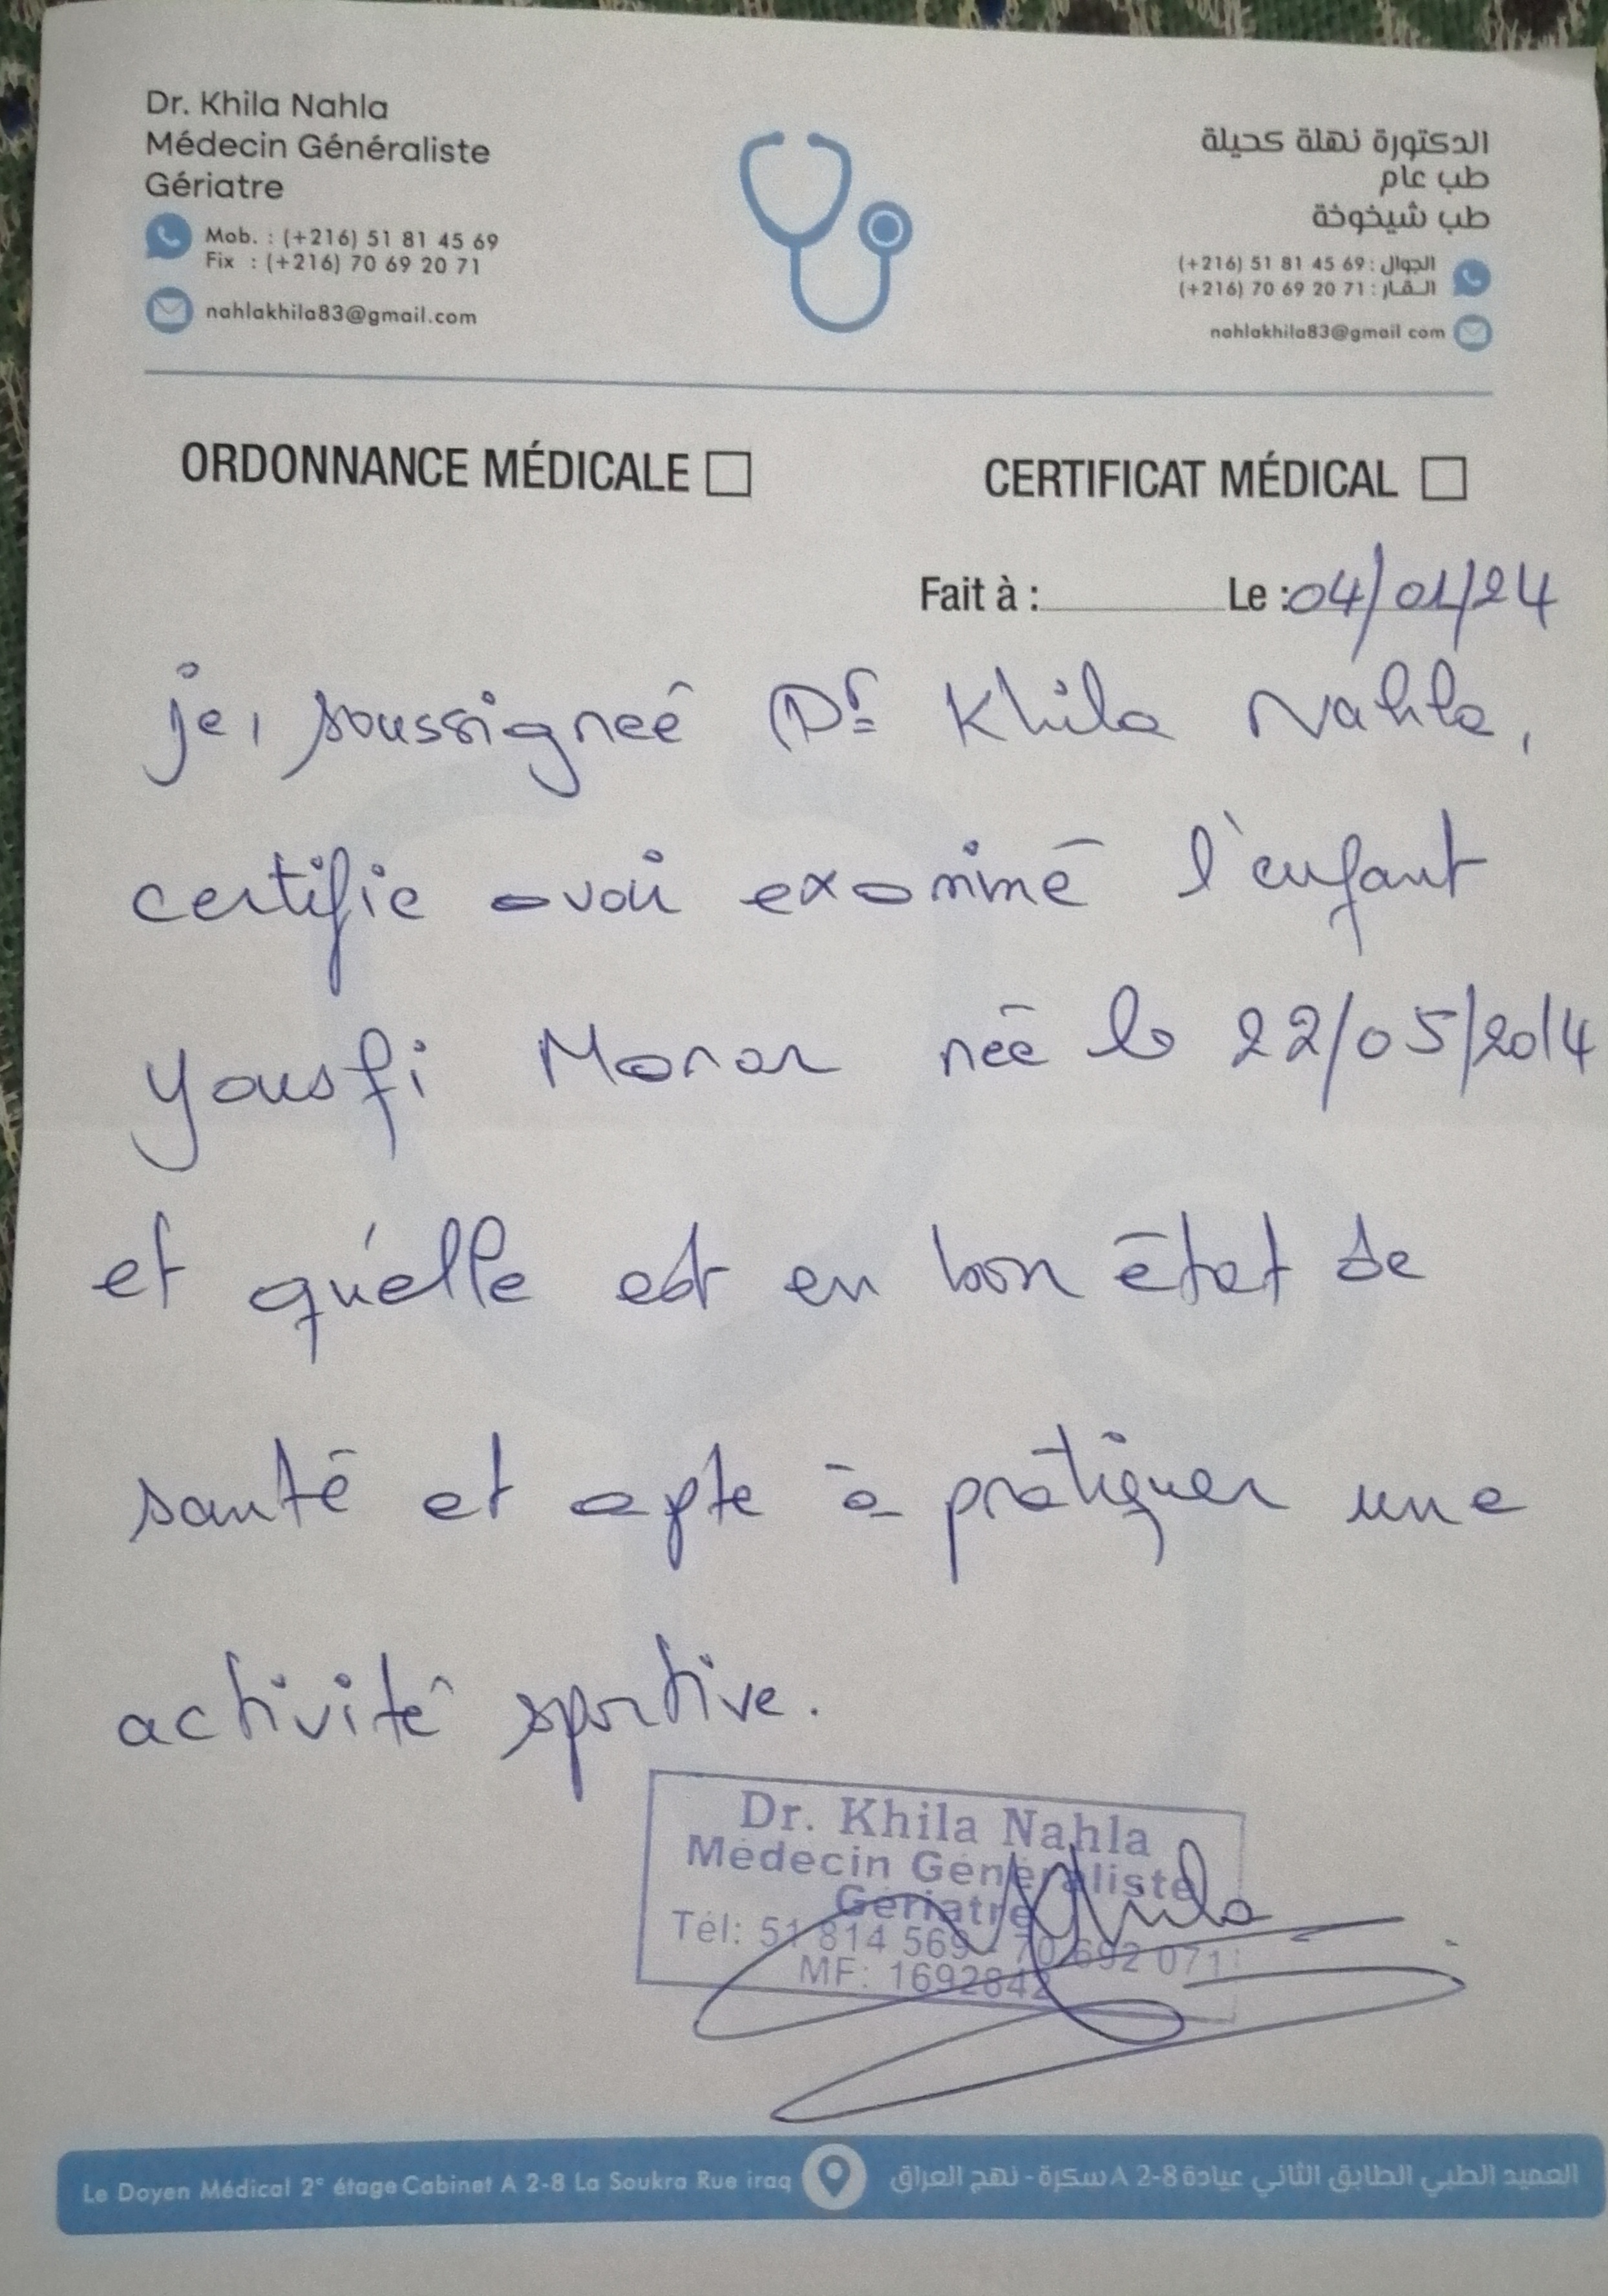 Dr. Khila Nahla
Médecin Généraliste
Gériatre
Mob. : (+216) 51 81 45 69
Fix : (+216) 70 69 20 71
nahlakhila83@gmail.com
الدكتورة نهلة كحيلة
طب عام
طب شيخوخة
الجوال : 69 45 81 51 (216+)
القار : 71 20 69 70 (216+)
nahlakhila83@gmail com
ORDONNANCE MÉDICALE
CERTIFICAT MÉDICAL
Fait à : Le : 04/01/24
je, soussigneé Dr Khila Nahla,
certifie avoir examiné l'enfant
Yousfi née le 22/05/2014
et qu'elle est en bon état de
santé et apte à pratiquer une
activité sportive.
Dr. Khila Nahla
Médecin Généraliste
Gériatre
Tél: 51 814 569 - 70 692 071
MF: 1692842
Le Doyen Médical 2° étage Cabinet A 2-8 La Soukra Rue iraq
العميد الطبي الطابق الثاني عيادة A 2-8 سكرة - نهج العراق